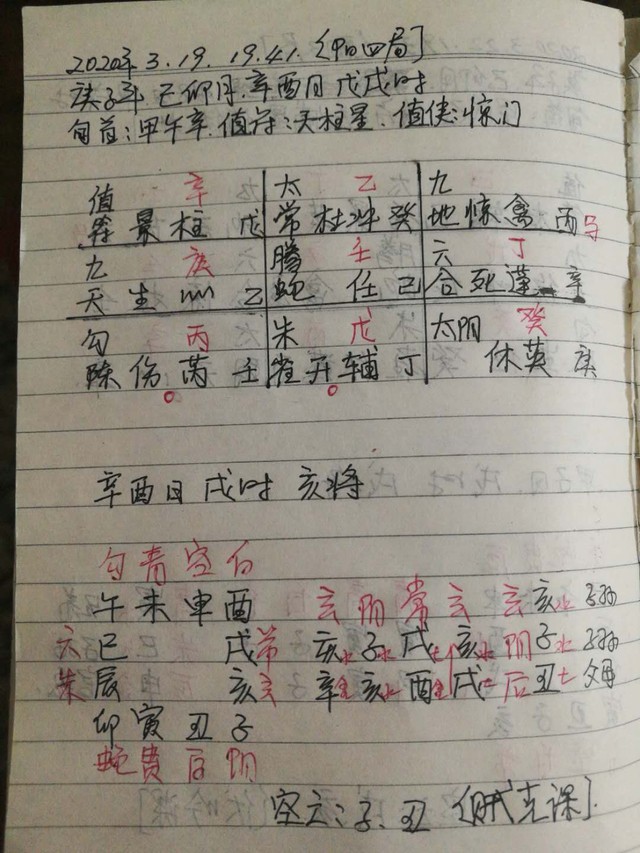 2020年 3.19. 19.41. [阳四局]
庚子年 己卯月.辛酉日 戊戌时
旬首:甲午辛.值符:天柱星.值使:惊门
值 辛 太 乙 九
符 景 柱 戊 常 杜 冲 癸 地 惊 禽 丙 马
九 庚 腾 壬 六 丁
天 生 心 乙 蛇 任 己 合 死 蓬 辛
勾 丙 朱 戊 太阴 癸
陈 伤 芮 壬 雀 开 辅 丁 休 英 庚
辛酉日 戌时 亥将
勾 青 空 白
午 未 申 酉 玄 阴 常 玄 玄 亥水 子孙
六 巳 戌 常 亥水 子水 戌土 亥水 阴 子水 子孙
朱 辰 亥 玄 辛金 亥水 酉金 戌土 后 丑土 父母
卯 寅 丑 子
蛇 贵 后 阴
空亡:子.丑 [重克课].